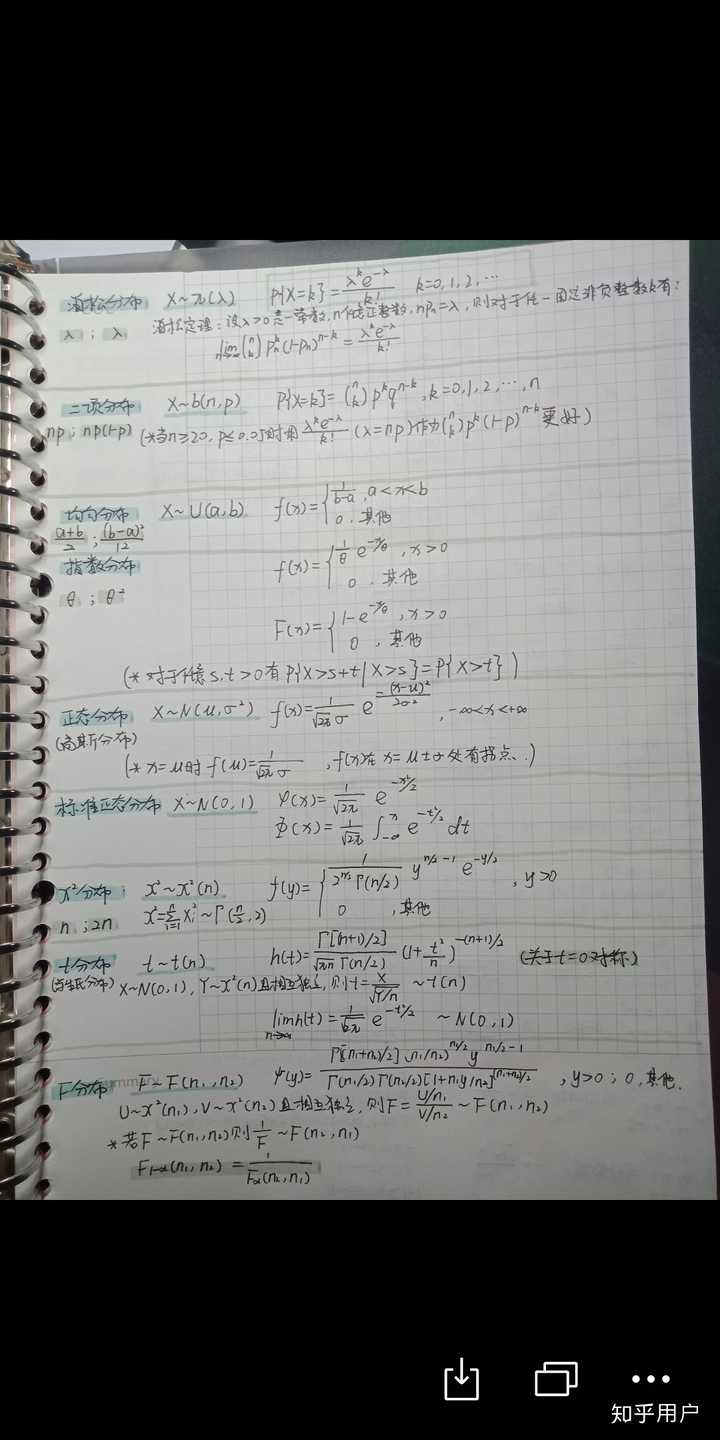 泊松分布 X~π(λ) P{X=k}=λ^k e^{-λ}/k! k=0,1,2,…
λ ; λ 泊松定理:设λ>0是一常数,n个任意正整数,npₙ=λ,则对于任一固定非负整数k有:
lim_{n→∞} (n k) pₙ^k (1-pₙ)^{n-k} = λ^k e^{-λ}/k!
二项分布 X~b(n,p) P{X=k}=(n k) p^k q^{n-k}, k=0,1,2,…,n
np; np(1-p) (*当n≥20, p≤0.05时用 λ^k e^{-λ}/k! (λ=np)作为(n k) p^k (1-p)^{n-k}更好)
均匀分布 X~U(a,b) f(x)={ 1/(b-a), a<x<b
0, 其他
(a+b)/2 ; (b-a)²/12
指数分布 f(x)={ 1/θ e^{-x/θ}, x>0
0, 其他
θ ; θ²
F(x)={ 1-e^{-x/θ}, x>0
0, 其他
(*对于任意 s,t>0有 P{X>s+t|X>s}=P{X>t})
正态分布 X~N(μ,σ²) f(x)=1/(√2π σ) e^{-(x-μ)²/2σ²}, -∞<x<+∞
(高斯分布)
(* x=μ时 f(μ)=1/(√2π σ), f(x)在 x=μ±σ处有拐点.)
标准正态分布 X~N(0,1) φ(x)=1/√2π e^{-x²/2}
Φ(x)=1/√2π ∫_{-∞}^{x} e^{-t²/2} dt
χ²分布: χ²~χ²(n) f(y)={ 1/(2^{n/2} Γ(n/2)) y^{n/2-1} e^{-y/2}, y>0
0, 其他
n ; 2n χ²=∑_{i=1}^{n} Xᵢ² ~Γ(n/2, 2)
t分布 t~t(n) h(t)=Γ[(n+1)/2]/(√πn Γ(n/2)) (1+t²/n)^{-(n+1)/2} (关于t=0对称)
(学生氏分布) X~N(0,1), Y~χ²(n)且相互独立,则t=X/√(Y/n) ~t(n)
lim_{n→∞} h(t)=1/√2π e^{-t²/2} ~N(0,1)
F分布 F~F(n₁,n₂) ψ(y)=Γ[(n₁+n₂)/2](n₁/n₂)^{n₁/2} y^{n₁/2-1}/(Γ(n₁/2)Γ(n₂/2)[1+n₁y/n₂]^{(n₁+n₂)/2}), y>0; 0,其他.
U~χ²(n₁), V~χ²(n₂)且相互独立,则F=(U/n₁)/(V/n₂) ~F(n₁,n₂)
*若F~F(n₁,n₂)则1/F ~F(n₂,n₁)
F_{1-α}(n₁,n₂)=1/F_α(n₂,n₁)
知乎用户